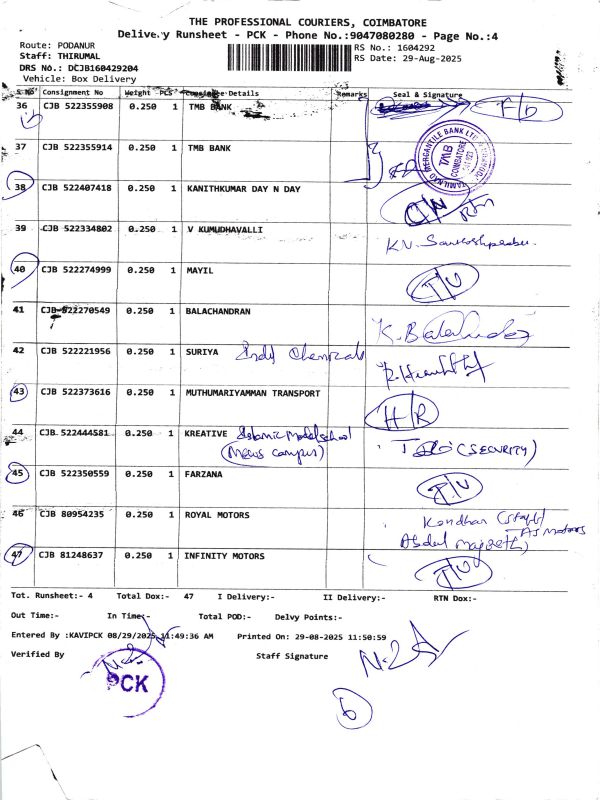 THE PROFESSIONAL COURIERS, COIMBATORE
Delivery Runsheet - PCK - Phone No.:9047080280 - Page No.:4
Route: PODANUR
RS No.: 1604292
Staff: THIRUMAL
RS Date: 29-Aug-2025
DRS No.: DCJB160429204
Vehicle: Box Delivery
S No Consignment No Weight PCS Consignee Details Remarks Seal & Signature
36 CJB 522355908 0.250 1 TMB BANK F/D
37 CJB 522355914 0.250 1 TMB BANK
TAMILNAD MERCANTILE BANK LTD
TMB
COIMBATORE
38 CJB 522407418 0.250 1 KANITHKUMAR DAY N DAY RTN
39 CJB 522334802 0.250 1 V KUMUDHAVALLI
40 CJB 522274999 0.250 1 MAYIL
41 CJB 522270549 0.250 1 BALACHANDRAN
42 CJB 522221956 0.250 1 SURIYA
43 CJB 522373616 0.250 1 MUTHUMARIYAMMAN TRANSPORT H/R
44 CJB 522444581 0.250 1 KREATIVE Islamic Model school (SECURITY)
(News campus)
45 CJB 522350559 0.250 1 FARZANA
46 CJB 80954235 0.250 1 ROYAL MOTORS AJ Motors
47 CJB 81248637 0.250 1 INFINITY MOTORS
Tot. Runsheet:- 4 Total Dox:- 47 I Delivery:- II Delivery:- RTN Dox:-
Out Time:- In Time:- Total POD:- Delvy Points:-
Entered By :KAVIPCK 08/29/2025 11:49:36 AM Printed On: 29-08-2025 11:50:59
Verified By Staff Signature
PCK